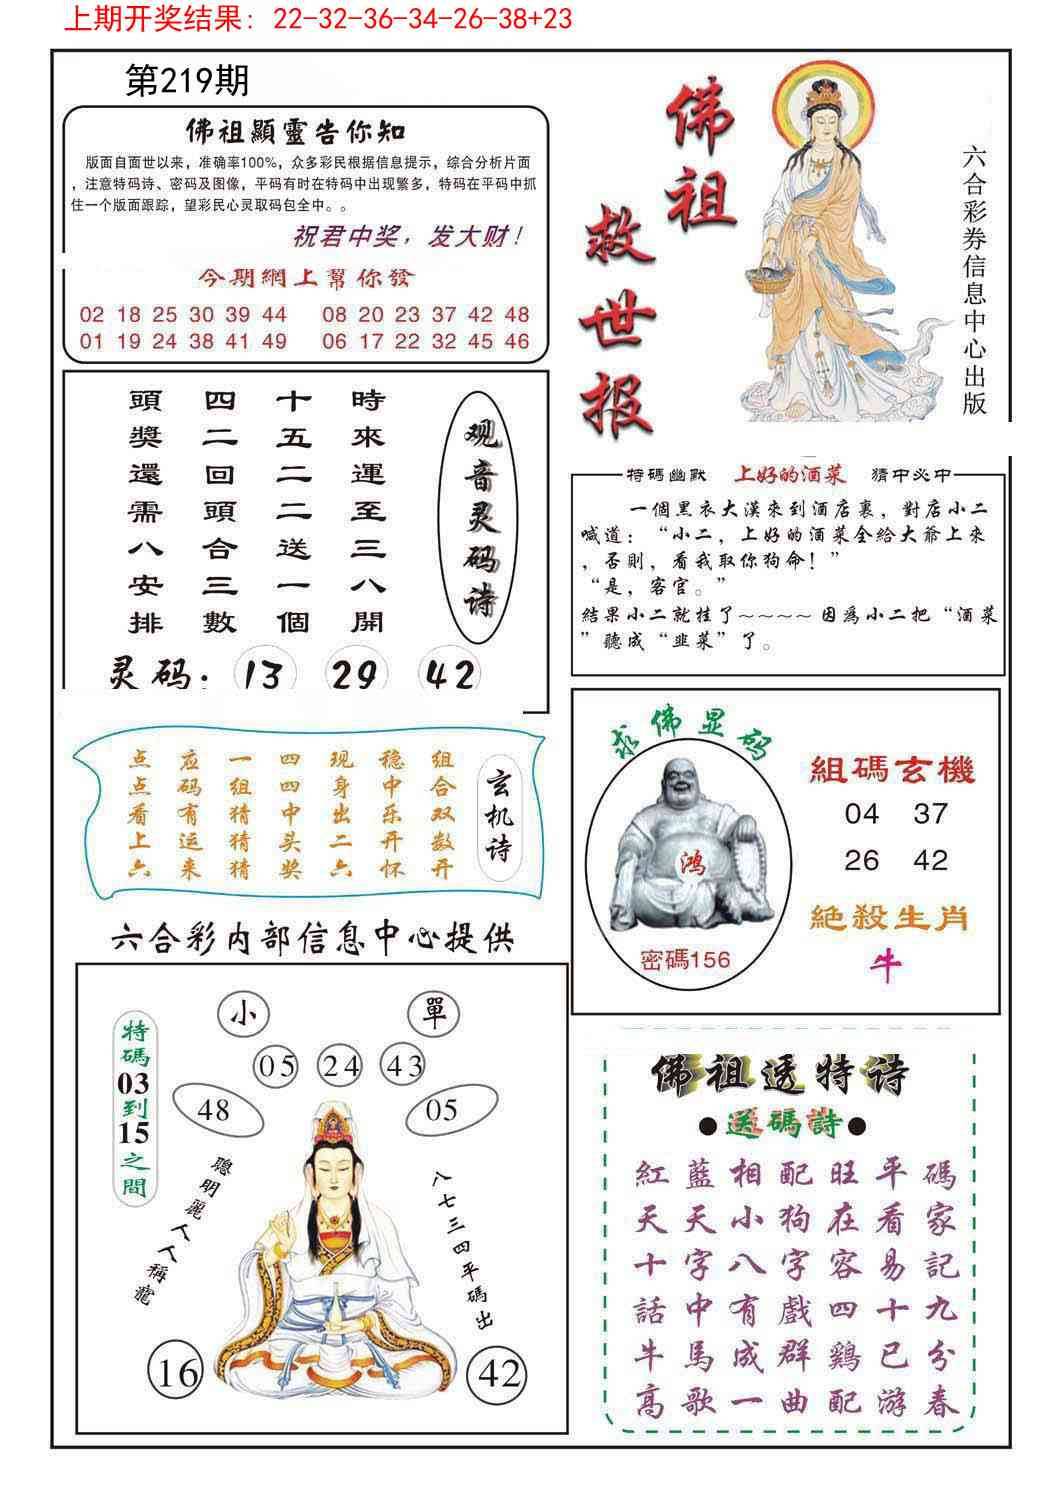 上期开奖结果：22-32-36-34-26-38+23
第219期
佛祖顯靈告你知
版面自面世以来，准确率100%，众多彩民根据信息提示，综合分析片面
，注意特码诗、密码及图像，平码有时在特码中出现繁多，特码在平码中抓
住一个版面跟踪，望彩民心灵取码包全中。。
祝君中奖，发大财！
今期網上幫你發
02 18 25 30 39 44 08 20 23 37 42 48
01 19 24 38 41 49 06 17 22 32 45 46
佛祖救世报
六合彩券信息中心出版
時來運至三八開
十五二二送一個
四二回頭合三數
頭獎還需八安排
观音灵码诗
灵码：13 29 42
特碼幽默 上好的酒菜 猜中必中
一個黑衣大漢來到酒店裏，對店小二
喊道：“小二，上好的酒菜全給大爺上來
，否則，看我取你狗命！”
“是，客官。”
結果小二就挂了~~~~因爲小二把“酒菜
”聽成“韭菜”了。
玄机诗
组合双数开
稳中乐开怀
现身出二六
四四中头奖
一组猜猜猜
应码有运来
点点看上六
求佛显码
鸿
密碼156
組碼玄機
04 37
26 42
絶殺生肖
牛
六合彩内部信息中心提供
小 單
05 24 43
48 05
特碼03到15之間
聰明麗人人稱寵
八七三四平碼出
16 42
佛祖透特诗
●送碼詩●
紅藍相配旺平碼
天天小狗在看家
十字八字容易記
話中有戲四十九
牛馬成群鷄已分
高歌一曲配游春